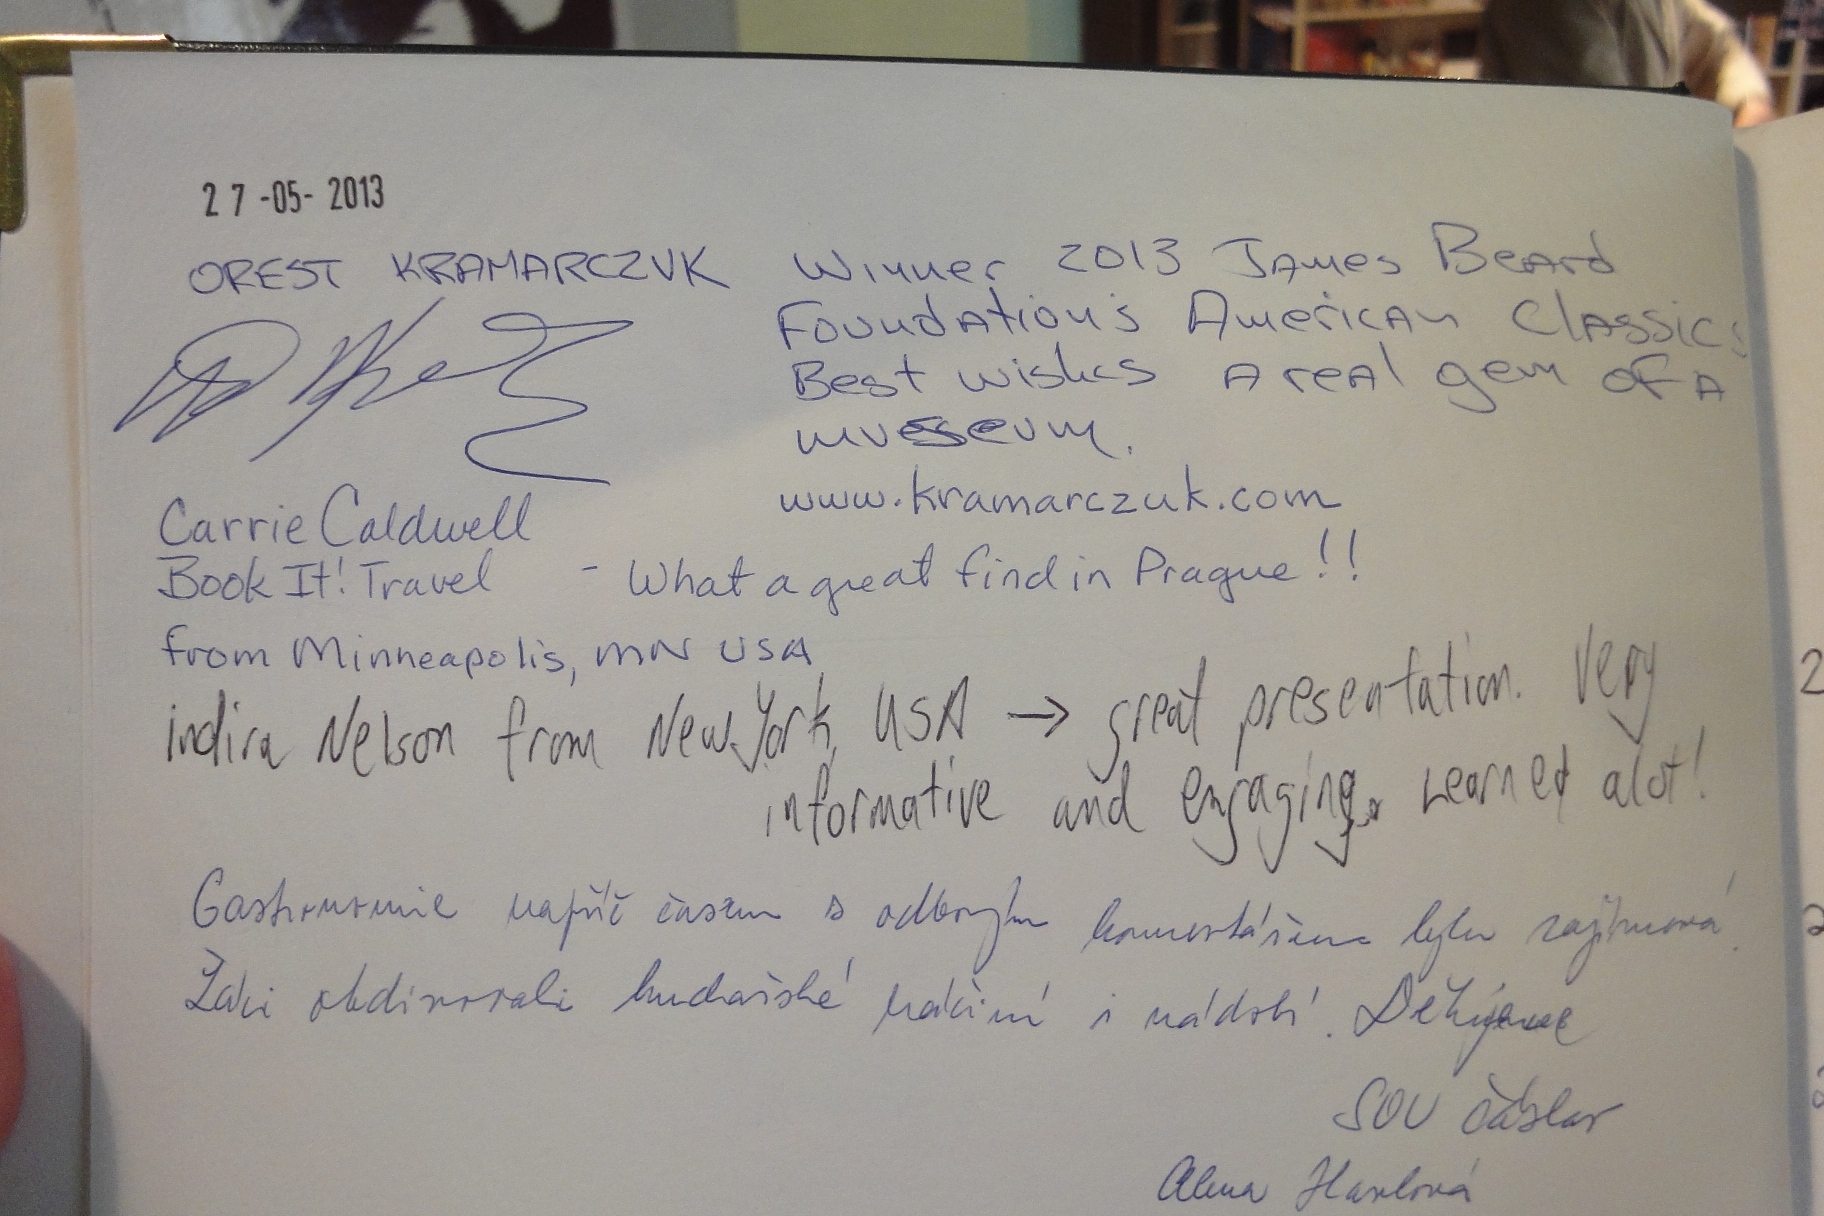 27-05-2013
OREST KRAMARCZUK
Winner 2013 James Beard
Foundation's American Classics
Best wishes A real gem of A
museum.
www.kramarczuk.com
Carrie Caldwell
Book It! Travel - What a great find in Prague!!
from Minneapolis, MN USA
indira Nelson from New York, USA → great presentation. Very
informative and engaging. Learned alot!
Gastronomie napříč časem s odborným komentářem byla zajímavá.
Žáci obdivovali kuchařské náčiní i nádobí. Děkujeme
SOU Čáslav
Alena Havlová
2
2